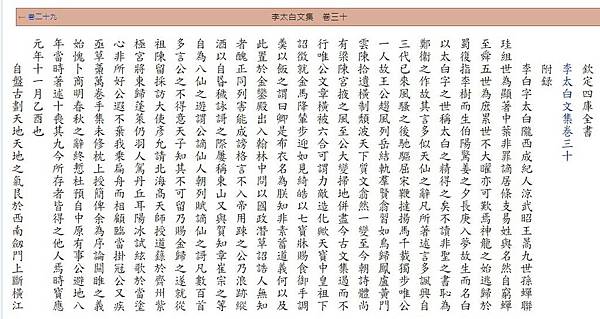 ← 卷二十九
李太白文集 卷三十
欽定四庫全書
李太白文集卷三十
附錄
李白字太白隴西成紀人涼武昭王暠九世孫蟬聯
珪組世為顯著中葉非罪謫居條支易姓與名然自窮蟬
至舜五世為庶累世不大曜亦可歎焉神龍之始逃歸於
蜀復指李樹而生伯陽驚姜之夕長庚入夢故生而名白
以太白字之世稱太白之精得之矣不讀非聖之書恥為
鄭衛之作故其言多似天仙之辭凡所著述言多諷興自
三代已來風騷之後馳驅屈宋鞭撻揚馬千載獨步唯公
一人故王公趨風列岳結軌羣賢翕習如鳥歸鳳盧黃門
云陳拾遺橫制頹波天下質文翕然一變至今朝詩體尚
有梁陳宮掖之風至公大變掃地併盡今古文集遏而不
行唯公文章橫被六合可謂力敵造化歟天寶中皇祖下
詔徵就金馬降輦步迎如見綺皓以七寶牀賜食御手調
羹以飯之謂曰卿是布衣名為朕知非素蓄道義何以及
此置於金鑾殿出入翰林中問以國政潛草詔誥人無知
者醜正同列害能成謗格言不入帝用疎之公乃浪跡縱
酒以自昏穢詠謌之際屢稱東山又與賀知章崔宗之等
自為八仙之遊謂公謫仙人朝列賦謫仙之詩凡數百首
多言公之不得意天子知其不可留乃賜金歸之遂就從
祖陳留採訪大使彥允請北海高天師授道籙於齊州紫
極宮將東歸蓬萊仍羽人駕丹丘耳陽冰試絃歌於當塗
心非所好公遐不棄我乘扁舟而相顧臨當掛冠公又疾
亟草藁萬卷手集未修枕上授簡俾余為序論關雎之義
始愧卜商明春秋之辭終慙杜預自中原有事公避地八
年當時著述十喪其九今所存者皆得之他人焉時寶應
元年十一月乙酉也
自盤古劃天地天地之氣艮於西南劒門上斷橫江